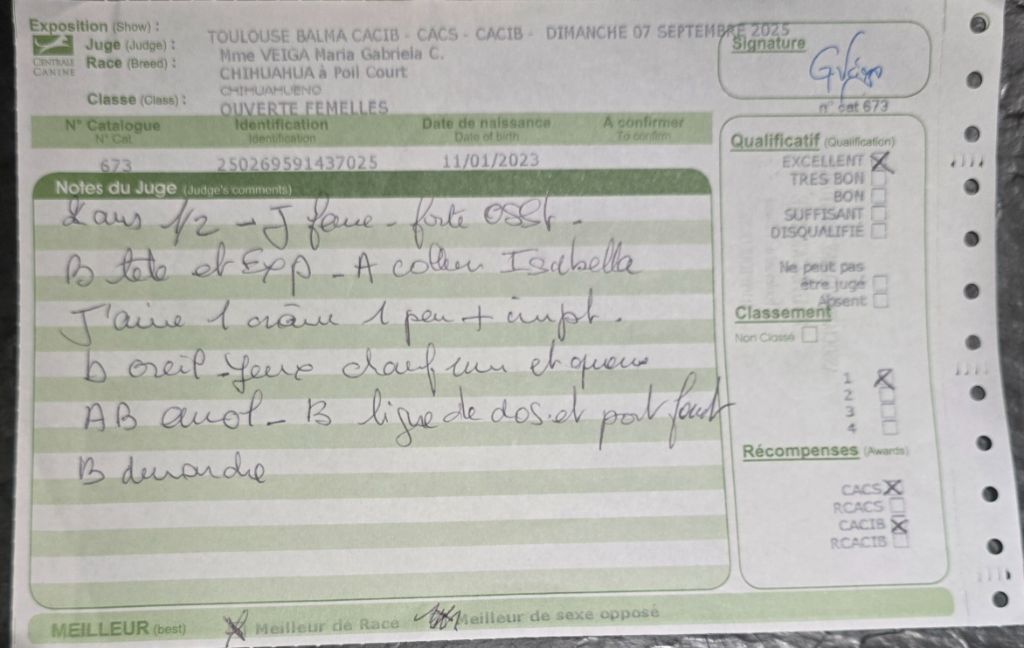 Exposition (Show) : TOULOUSE BALMA CACIB - CACS - CACIB - DIMANCHE 07 SEPTEMBRE 2025
CENTRALE CANINE
Juge (Judge) : Mme VEIGA Maria Gabriela C.
Race (Breed) : CHIHUAHUA à Poil Court
CHIHUAHUENO
Classe (Class) : OUVERTE FEMELLES
Signature
n° cat 673
N° Catalogue Identification Date de naissance A confirmer
N° Cat. Identification Date of birth To confirm
673 250269591437025 11/01/2023
Notes du Juge (Judge's comments)
2 ans 1/2 - J feme - forte osst -
B tete et Exp - A Isabella
J'aime 1 crâne 1 peu + impt.
b oreil - yeux et
AB - B ligne de dos et port
B demarche
Qualificatif (Qualification)
EXCELLENT
TRES BON
BON
SUFFISANT
DISQUALIFIÉ
Ne peut pas
être jugé
Absent
Classement
Non Classé
1
2
3
4
Récompenses (Awards)
CACS
RCACS
CACIB
RCACIB
MEILLEUR (best) Meilleur de Race Meilleur de sexe opposé